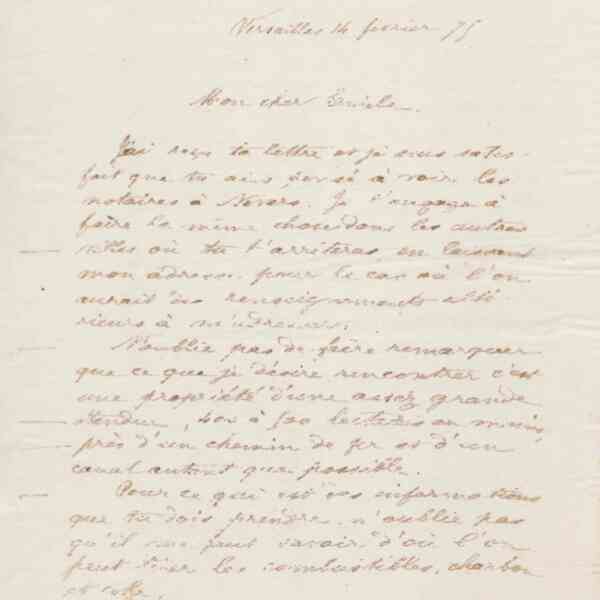 Versailles 14 février 75
Mon cher Emile.
J'ai reçu ta lettre et je suis satis-
fait que tu aies pensé à voir les
notaires à Nevers. Je t'engage à
faire la même chose dans les autres
villes où tu t'arrêteras, en laissant
mon adresse pour le cas où l'on
aurait des renseignements ulté-
rieurs à m'adresser.
N'oublie pas de faire remarquer
que ce que je désire rencontrer c'est
une propriété d'une assez grande
étendue, 400 à 500 hectares au moins,
près d'un chemin de fer et d'un
canal autant que possible.
Pour ce qui est des informations
que tu dois prendre, n'oublie pas
qu'il me faut savoir d'où l'on
peut tirer les combustibles, charbon
et coke.